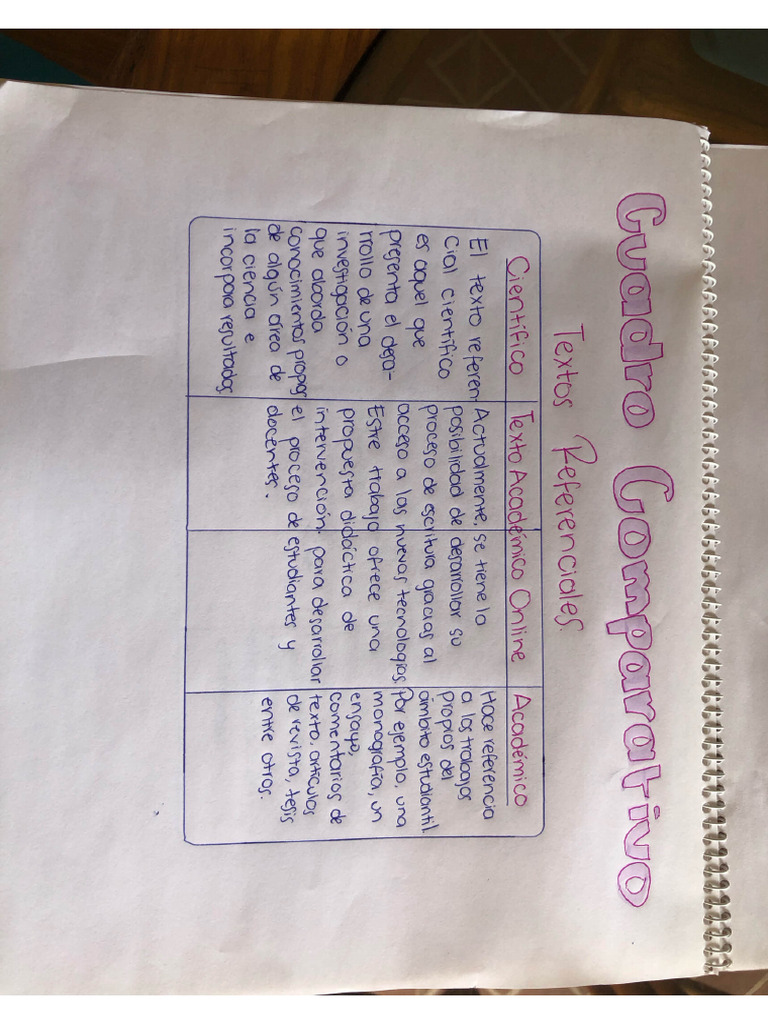 Cuadro Comparativo
Textos Referenciales.
Científico
El texto referen
cial científico
es aquel que
presenta el desa-
rrollo de una
investigación o
que aborda
conocimientos propios
de algún área de
la ciencia e
incorpora resultados.
Texto Académico Online
Actualmente, se tiene la
posibilidad de desarrollar su
proceso de escritura gracias al
acceso a las nuevas tecnologías.
Estre trabajo ofrece una
propuesta didáctica de
intervención para desarrollar
el proceso de estudiantes y
docentes.
Académico
Hace referencia
a los trabajos
propios del
ámbito estudiantil.
Por ejemplo, una
monografía, un
ensayo,
comentarios de
texto, artículos
de revista, tesis
entre otros.